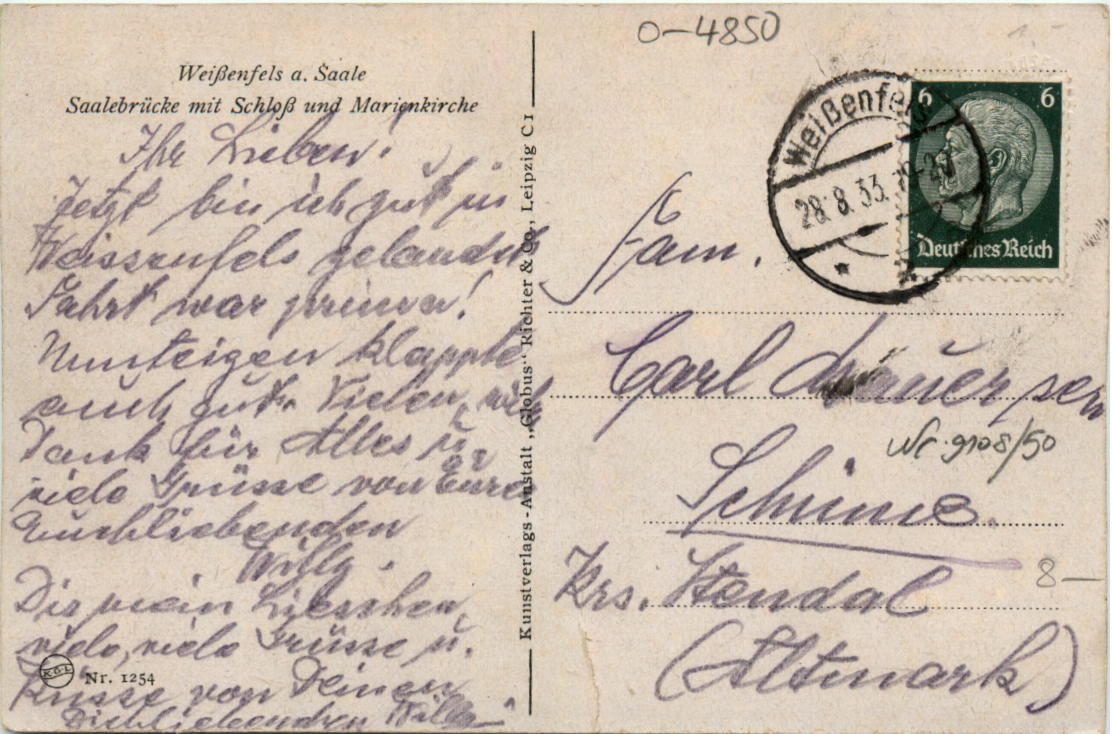 0-4850
Weißenfels a. Saale
Saalebrücke mit Schloß und Marienkirche
Ihr Lieben!
Jetzt bin ich gut in
Weissenfels gelandet
Fahrt war prima!
Umsteigen klappte
auch gut. Vielen, viel
Dank für Alles u.
viele Grüsse von Euren
Euchliebenden
Willy.
Dir mein Lieschen,
viele, viele Grüsse u.
Küsse von Deinem
Dichliebenden Willy
K·G·L
Nr. 1254
Kunstverlags-Anstalt „Globus" Richter & Co., Leipzig C1
Weißenfels
28.8.33.
6 6
Deutsches Reich
Fam.
Carl sen
Nr. 9108/50
Schinne.
Krs. Stendal
8-
(Altmark)